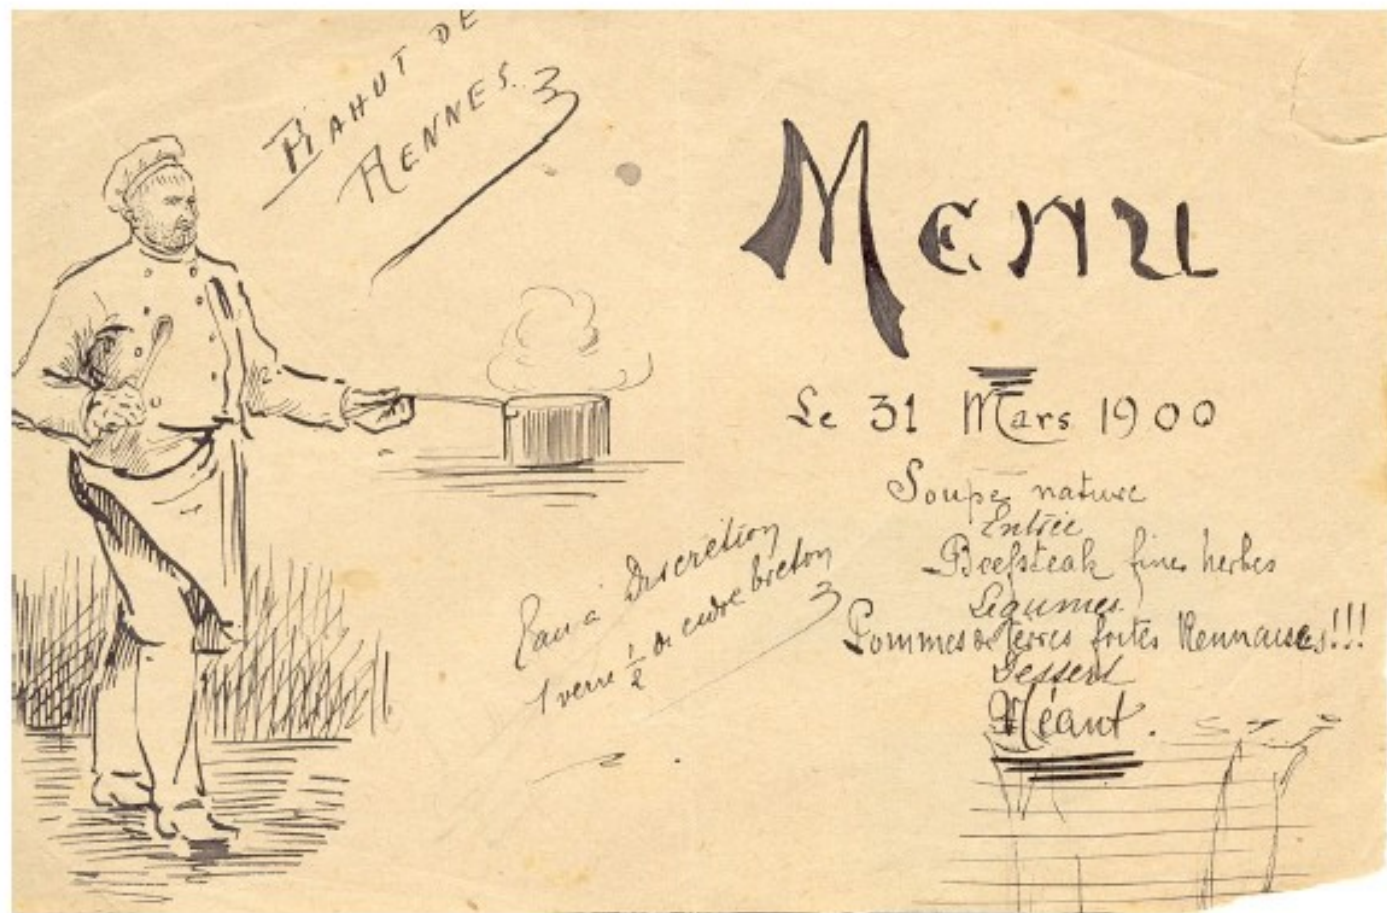 BAHUT DE
RENNES.
Menu
Le 31 Mars 1900
Soupe nature
Entrée
Beefsteak fines herbes
Légumes
Pommes de terres frites Rennaises!!!
Dessert
Néant.
Eau à Discrétion
1 verre 1/2 de cidre breton